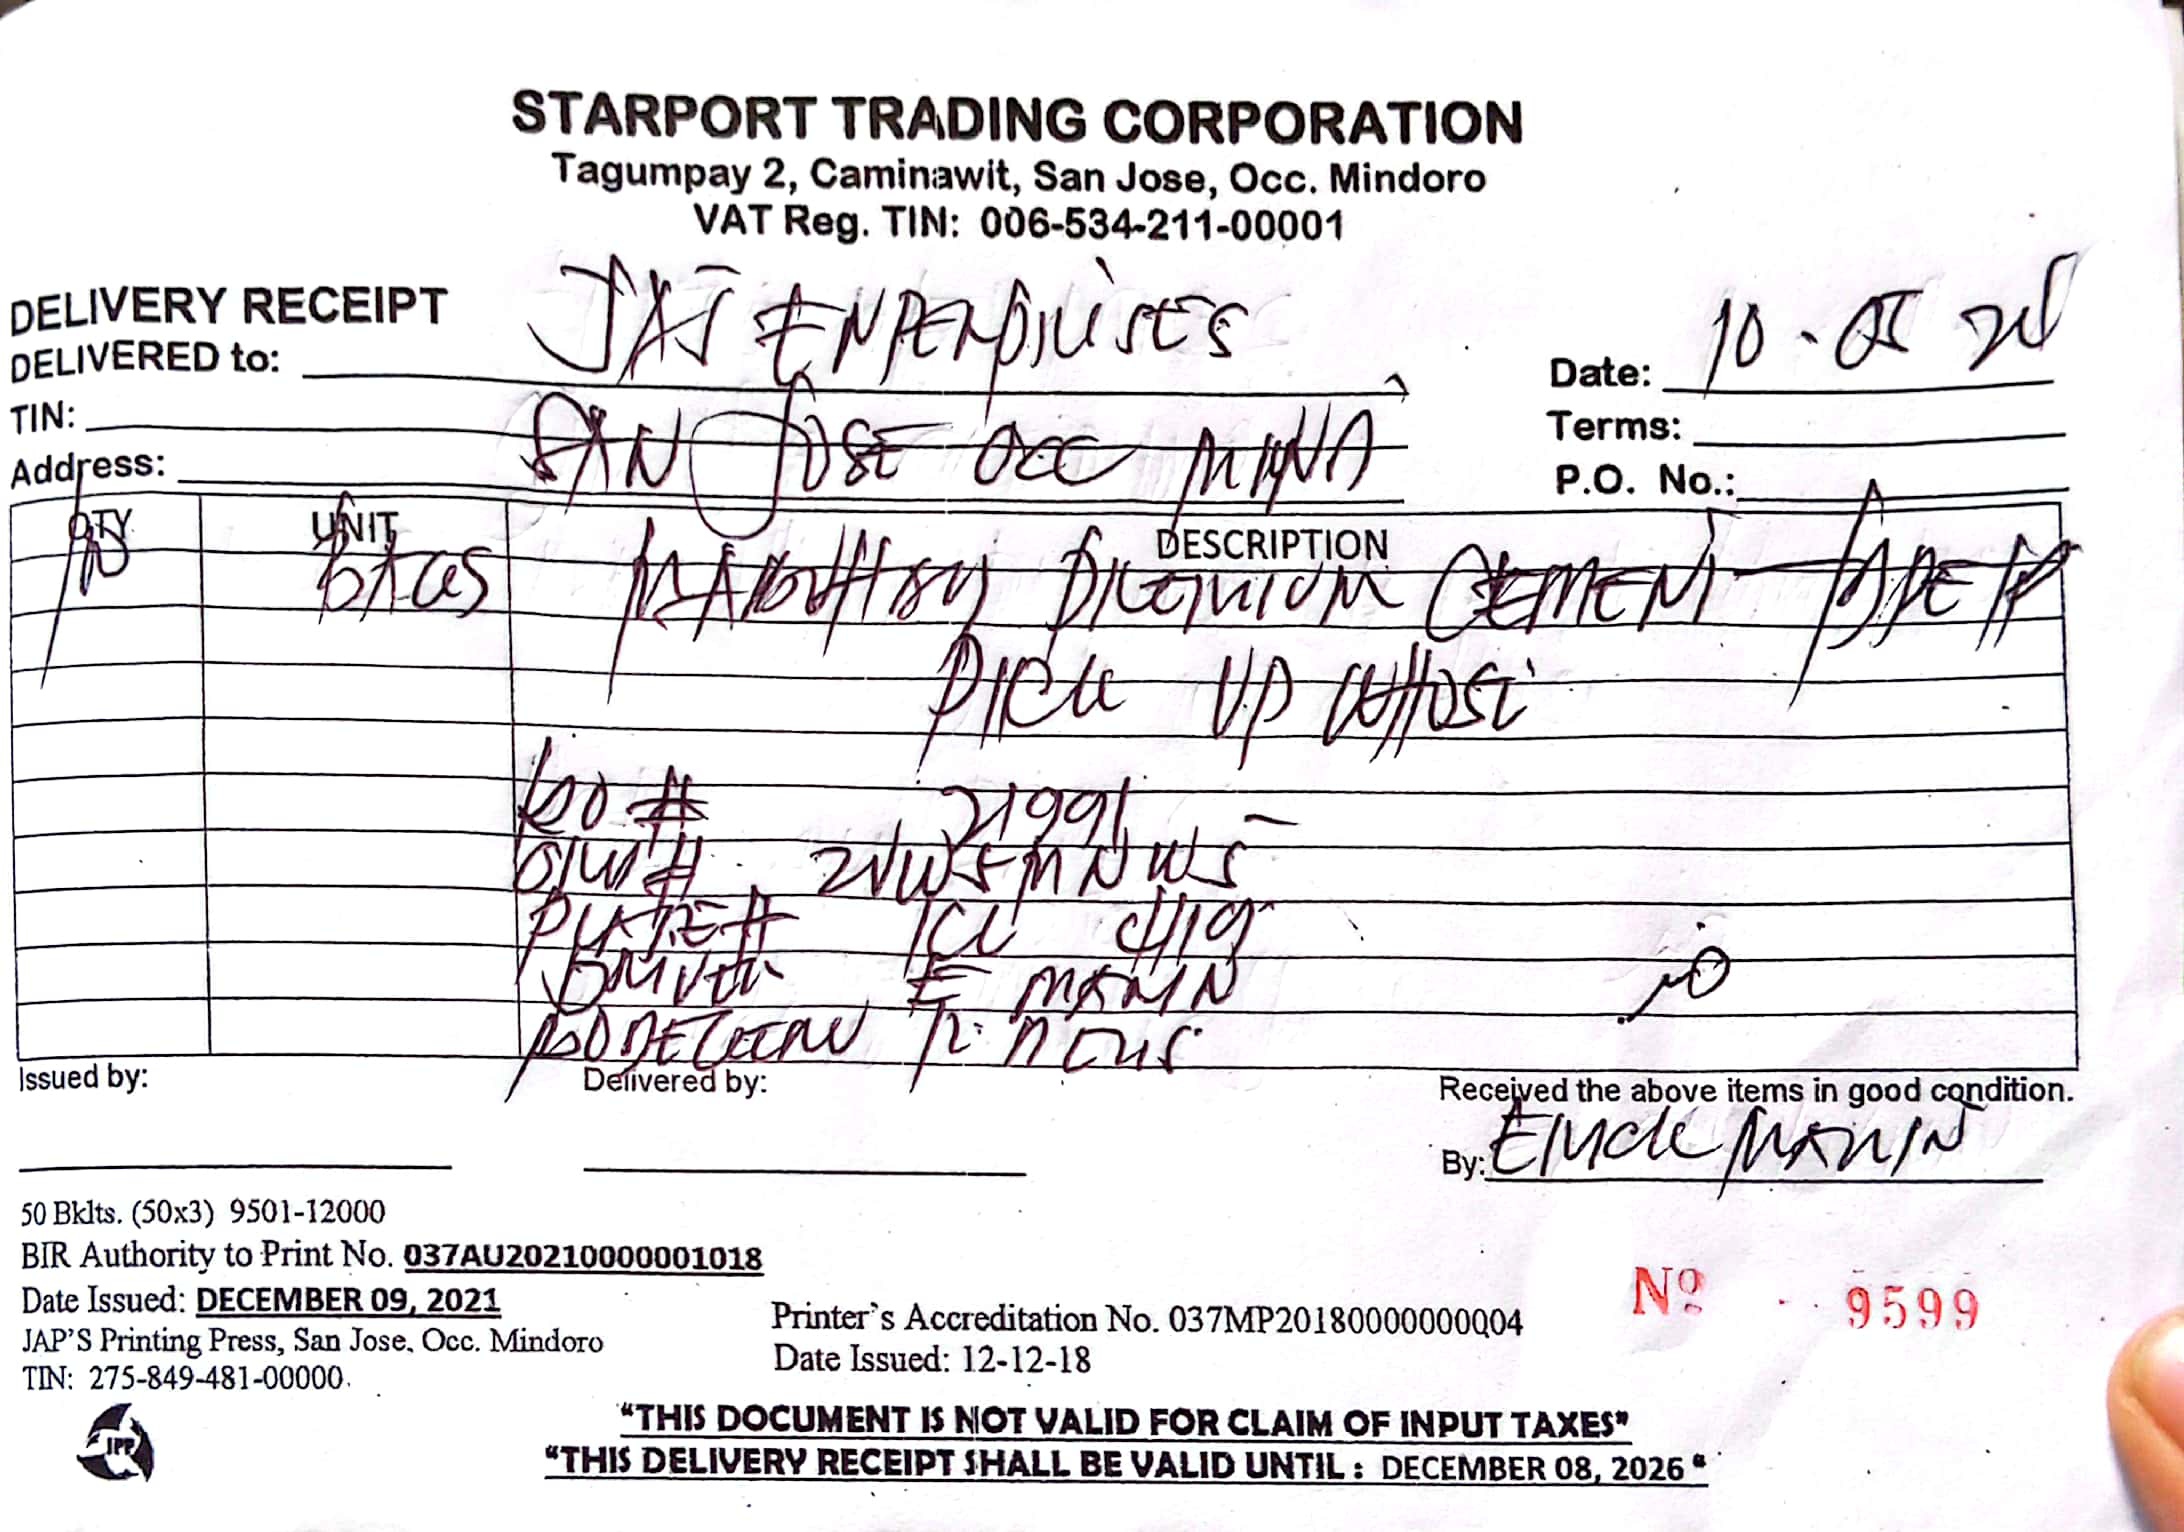 STARPORT TRADING CORPORATION
Tagumpay 2, Caminawit, San Jose, Occ. Mindoro
VAT Reg. TIN: 006-534-211-00001
DELIVERY RECEIPT
DELIVERED to: JAJ ENTERPRISES
Date: 10-05
TIN:
Terms:
Address: SAN JOSE OCC
P.O. No.:
QTY UNIT DESCRIPTION
BAGS PREMIUM CEMENT TYPE
PICK UP WHOSE
#
#
PLATE#
DRIVER E MARIN
Issued by:
Delivered by:
Received the above items in good condition.
By: MARIN
50 Bklts. (50x3) 9501-12000
BIR Authority to Print No. 037AU20210000001018
Date Issued: DECEMBER 09, 2021
JAP'S Printing Press, San Jose, Occ. Mindoro
TIN: 275-849-481-00000
Printer's Accreditation No. 037MP20180000000004
Date Issued: 12-12-18
Nº 9599
JPP
"THIS DOCUMENT IS NOT VALID FOR CLAIM OF INPUT TAXES"
"THIS DELIVERY RECEIPT SHALL BE VALID UNTIL : DECEMBER 08, 2026 "